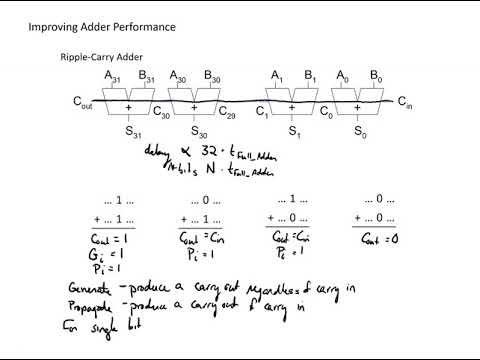 Improving Adder Performance
Ripple-Carry Adder
A31 B31 A30 B30 A1 B1 A0 B0
Cout + C30 + C29 C1 + C0 + Cin
S31 S30 S1 S0
delay ∝ 32 · tFull_Adder
N-bits N · tFull_Adder
... 1 ... ... 0 ... ... 1 ... ... 0 ...
+ ... 1 ... + ... 1 ... + ... 0 ... + ... 0 ...
Cout = 1 Cout = Cin Cout = Cin Cout = 0
Gi = 1 Pi = 1 Pi = 1
Pi = 1
Generate - produce a carry out regardless of carry in
Propagate - produce a carry out if carry in
For single bit